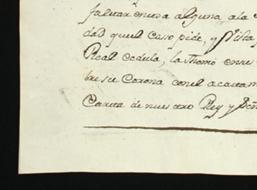 faltar en cosa alguna, a la
dad qu el Caso pide, y Vista
Real cedula, la tomó en su
bre su Corona con el acatam
Carta de nuestro Rey y Señ